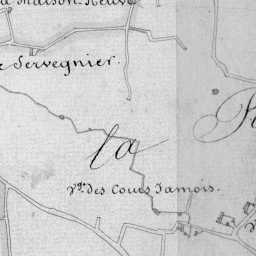 a Maison-Neuve
Servegnier.
la
V.ge des Cours Jamois.